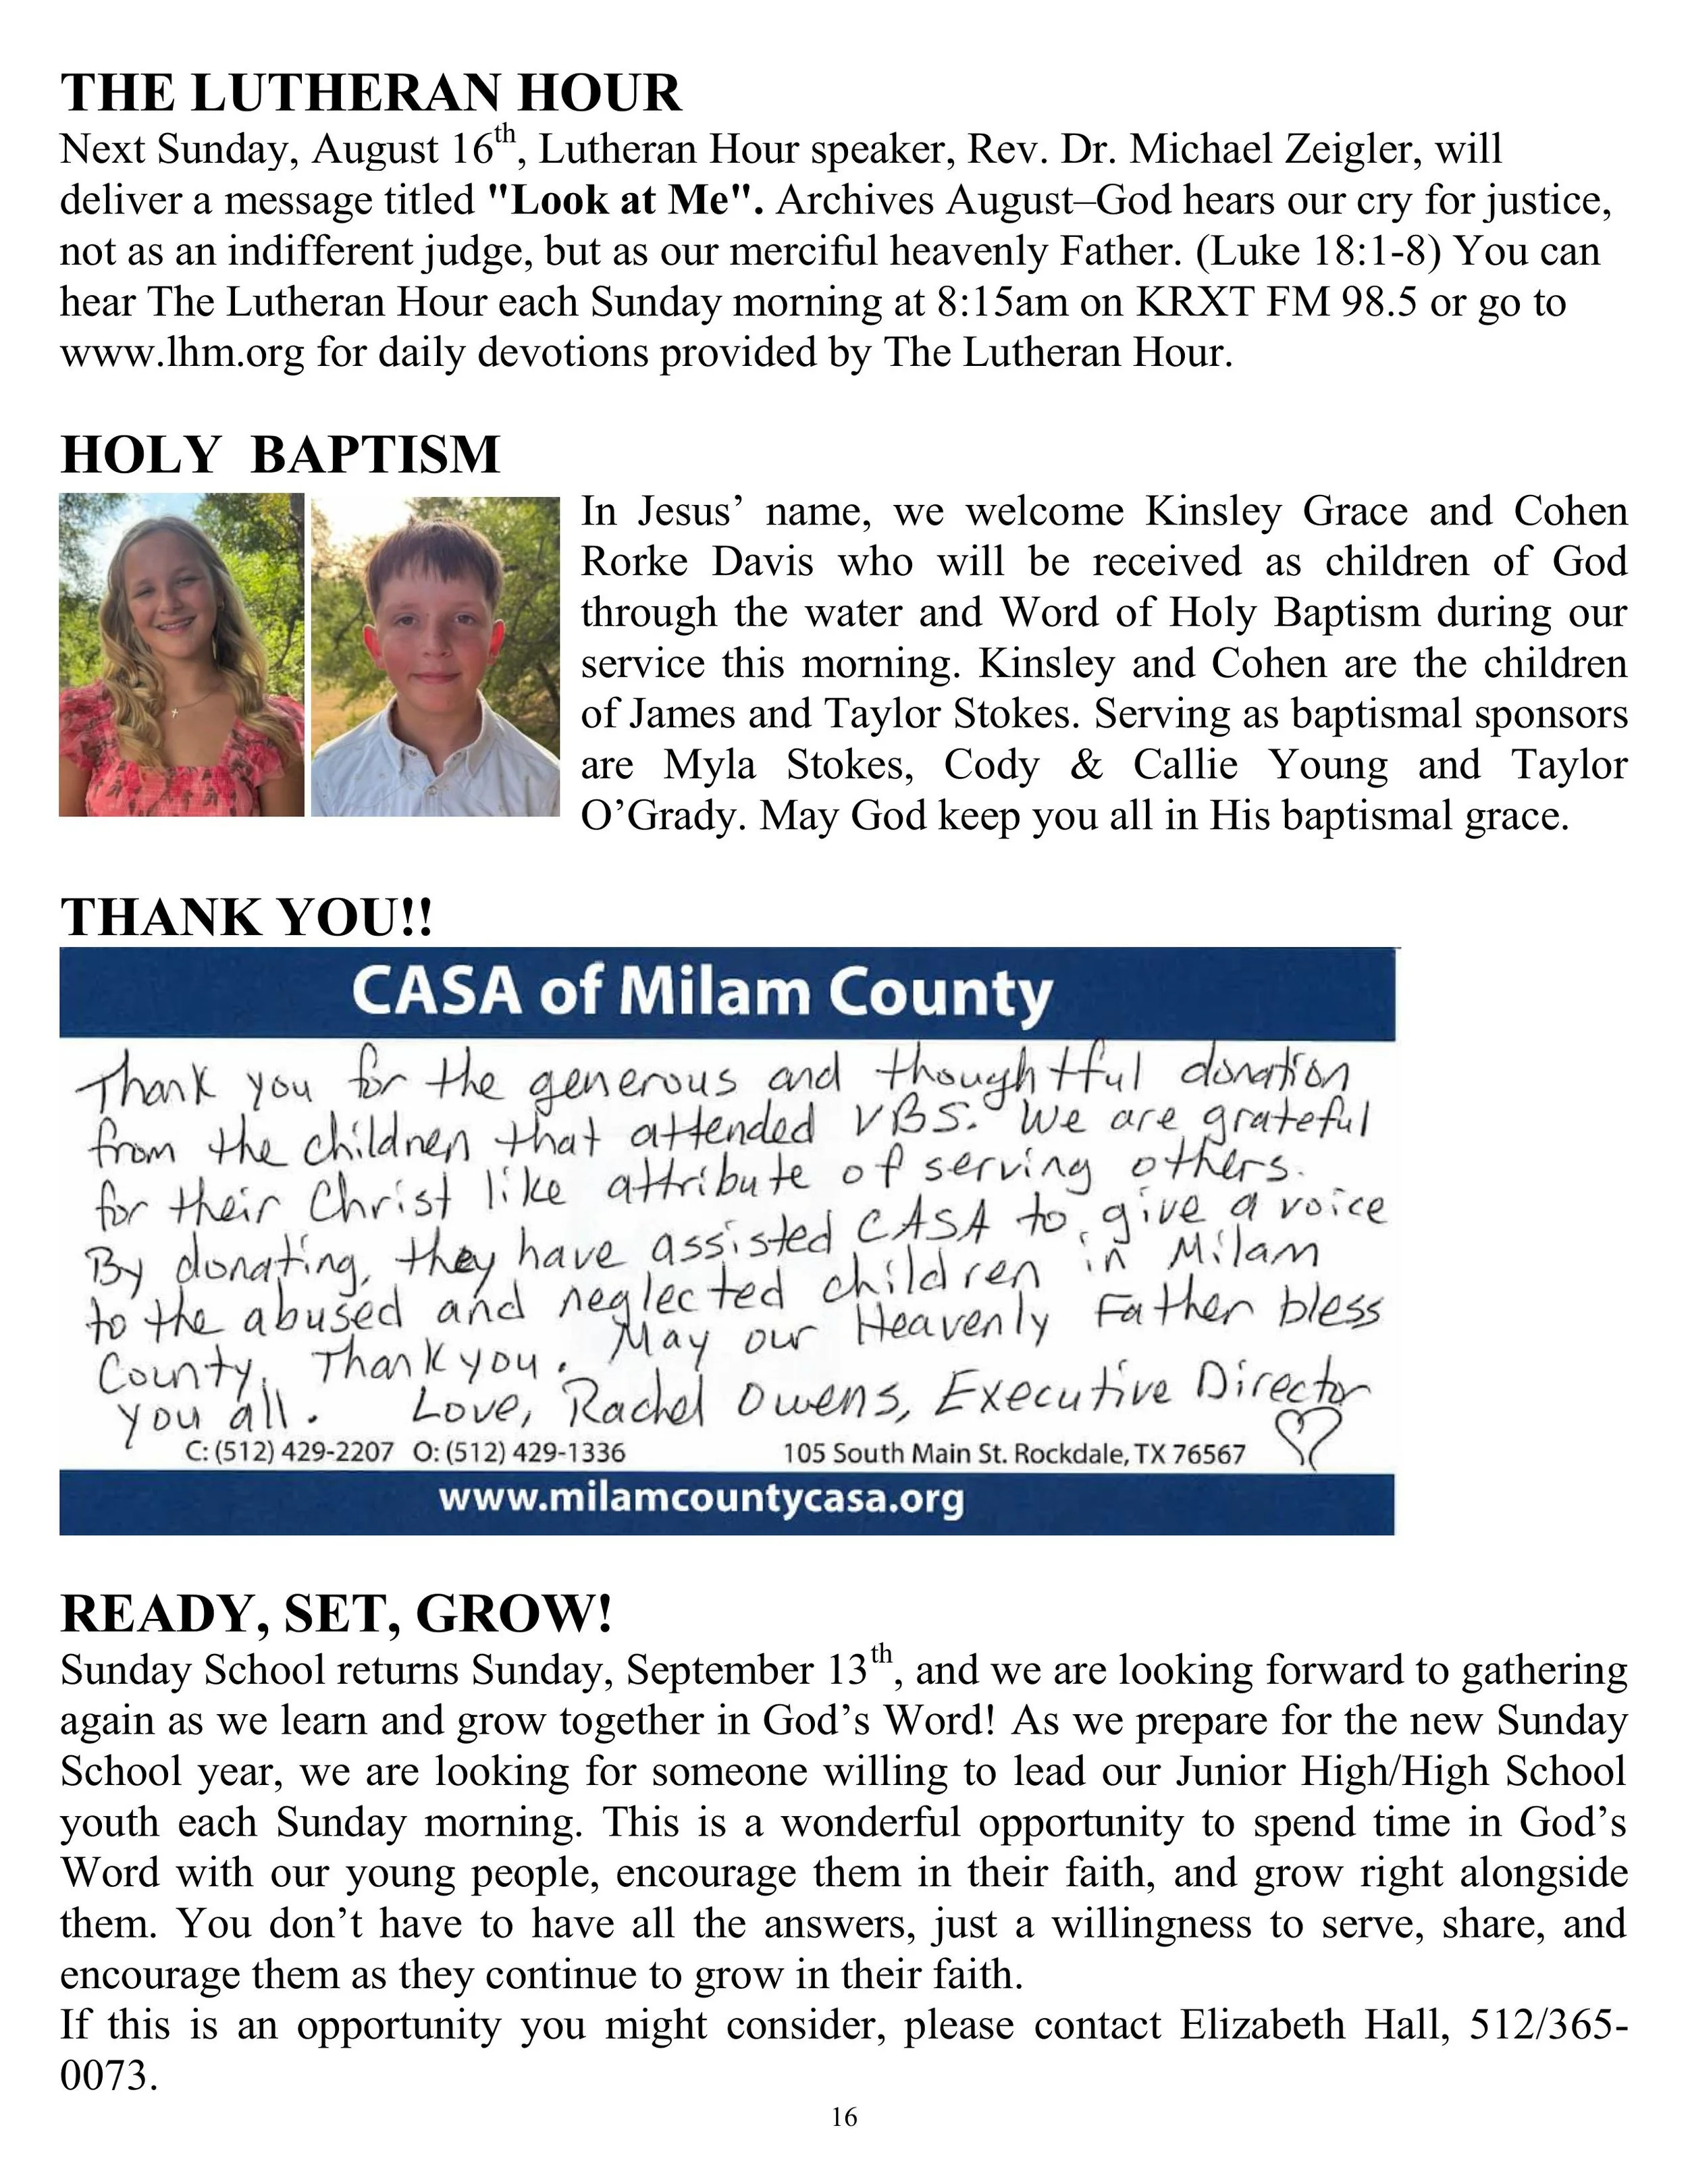 THE LUTHERAN HOUR
Next Sunday, August 16th, Lutheran Hour speaker, Rev. Dr. Michael Zeigler, will
deliver a message titled "Look at Me". Archives August–God hears our cry for justice,
not as an indifferent judge, but as our merciful heavenly Father. (Luke 18:1-8) You can
hear The Lutheran Hour each Sunday morning at 8:15am on KRXT FM 98.5 or go to
www.lhm.org for daily devotions provided by The Lutheran Hour.
HOLY BAPTISM
In Jesus’ name, we welcome Kinsley Grace and Cohen
Rorke Davis who will be received as children of God
through the water and Word of Holy Baptism during our
service this morning. Kinsley and Cohen are the children
of James and Taylor Stokes. Serving as baptismal sponsors
are Myla Stokes, Cody & Callie Young and Taylor
O’Grady. May God keep you all in His baptismal grace.
THANK YOU!!
CASA of Milam County
Thank you for the generous and thoughtful donation
from the children that attended VBS. We are grateful
for their Christ like attribute of serving others.
By donating, they have assisted CASA to give a voice
to the abused and neglected children in Milam
County. Thank you. May our Heavenly Father bless
you all. Love, Rachel Owens, Executive Director
C: (512) 429-2207 O: (512) 429-1336 105 South Main St. Rockdale, TX 76567
www.milamcountycasa.org
READY, SET, GROW!
Sunday School returns Sunday, September 13th, and we are looking forward to gathering
again as we learn and grow together in God’s Word! As we prepare for the new Sunday
School year, we are looking for someone willing to lead our Junior High/High School
youth each Sunday morning. This is a wonderful opportunity to spend time in God’s
Word with our young people, encourage them in their faith, and grow right alongside
them. You don’t have to have all the answers, just a willingness to serve, share, and
encourage them as they continue to grow in their faith.
If this is an opportunity you might consider, please contact Elizabeth Hall, 512/365-
0073.
16